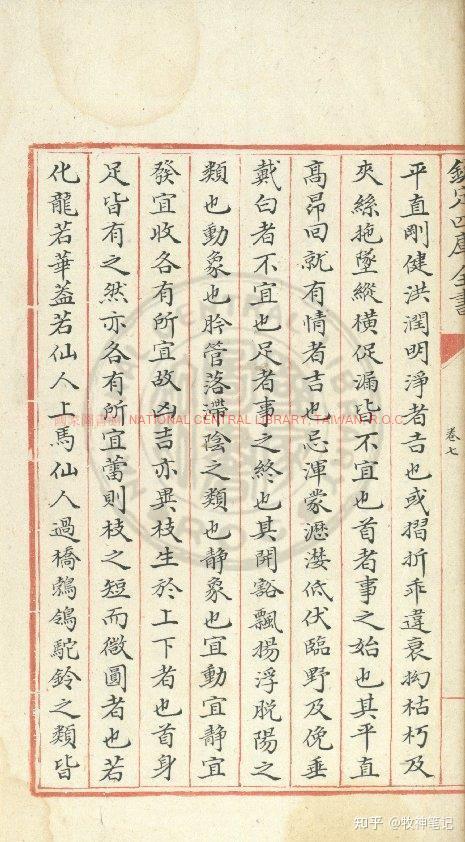 欽定四庫全書
卷七
平直剛健洪潤明淨者吉也或摺折乖違衰拗枯朽及
夾絲拖墜縱橫促漏皆不宜也首者事之始也其平直
高昂回就有情者吉也忌渾蒙瀝漤低伏臨野及俛垂
戴白者不宜也足者事之終也其開豁飄揚浮脫陽之
類也動象也肣管落滯陰之類也静象也宜動宜静宜
發宜收各有所宜故凶吉亦異枝生於上下者也首身
足皆有之然亦各有所宜蕾則枝之短而微圓者也若
化龍若華蓋若仙人上馬仙人過橋鵓鴿駝鈴之類皆
國家圖書館 NATIONAL CENTRAL LIBRARY, TAIWAN R.O.C.
知乎 @牧神笔记